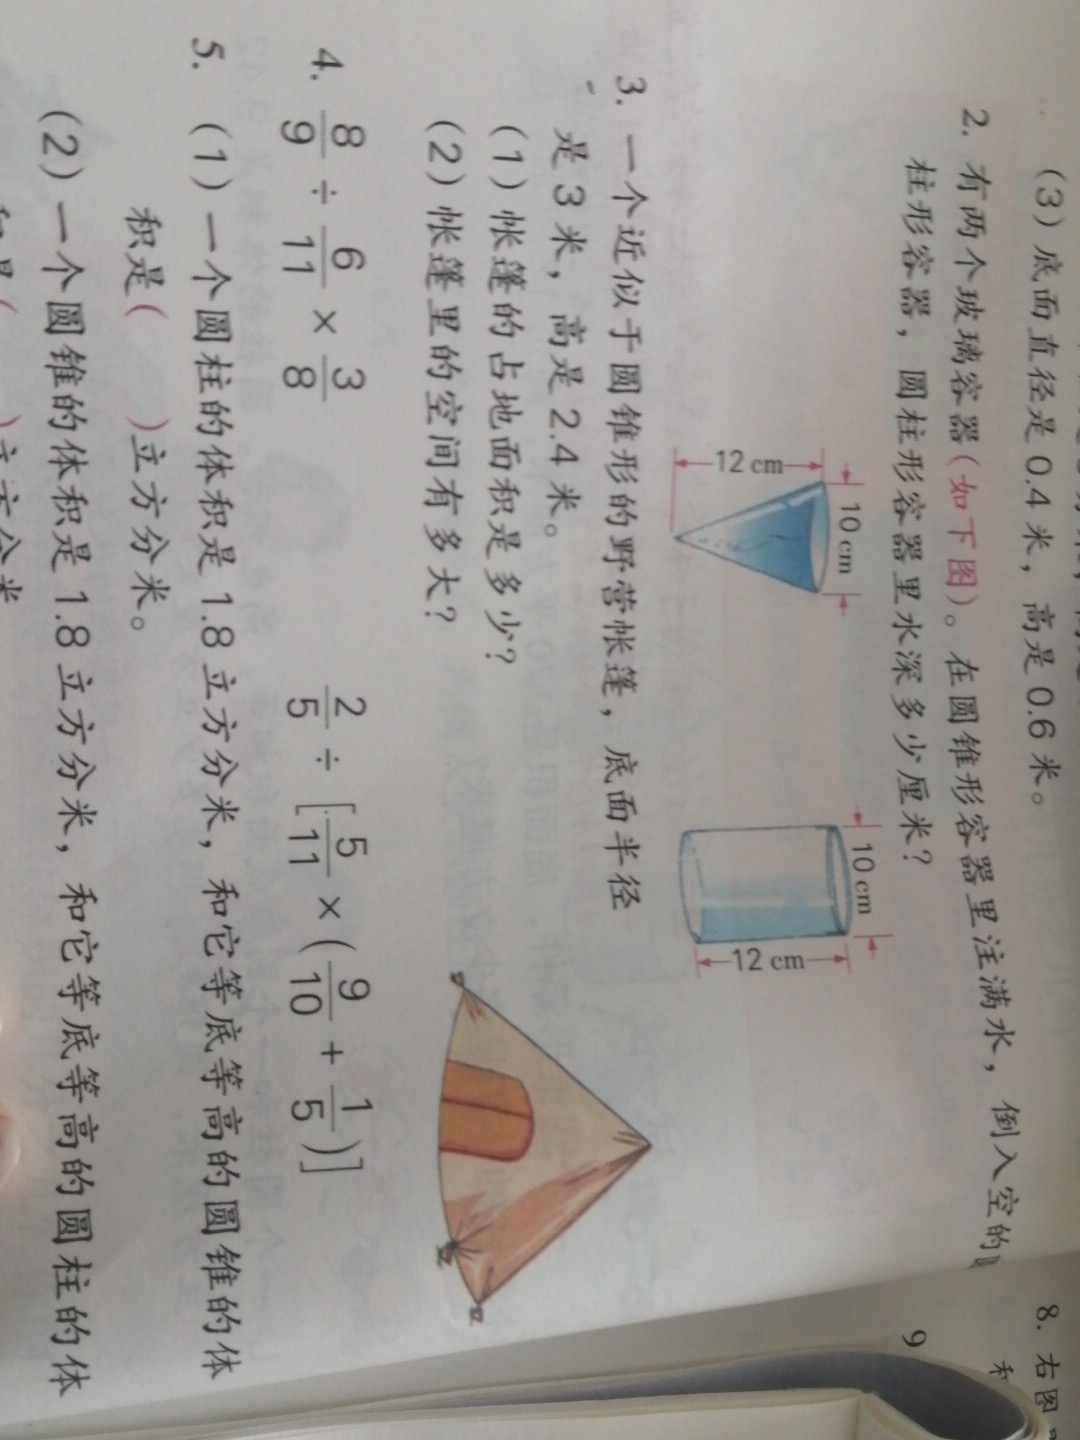 (3)底面直径是0.4米，高是0.6米。
2. 有两个玻璃容器(如下图)。在圆锥形容器里注满水，倒入空的
柱形容器，圆柱形容器里水深多少厘米？
10 cm
12 cm
10 cm
12 cm
3. 一个近似于圆锥形的野营帐篷，底面半径
是3米，高是2.4米。
(1)帐篷的占地面积是多少？
(2)帐篷里的空间有多大？
4. 8/9 ÷ 6/11 × 3/8 2/5 ÷ [5/11 × (9/10 + 1/5)]
5. (1)一个圆柱的体积是1.8立方分米，和它等底等高的圆锥的体
积是( )立方分米。
(2)一个圆锥的体积是1.8立方分米，和它等底等高的圆柱的体
8. 右图
9